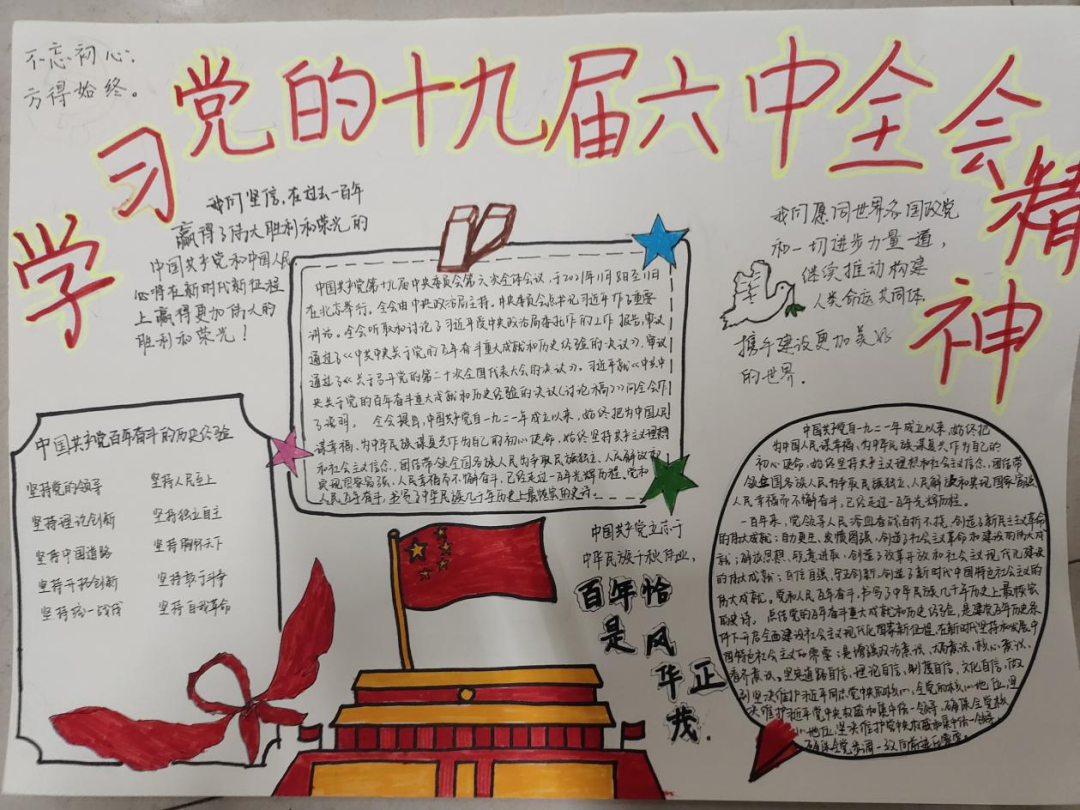 不忘初心，
方得始终。
学习党的十九届六中全会精神
我们坚信，在过去一百年
赢得了伟大胜利和荣光的
中国共产党和中国人民
必将在新时代新征程
上赢得更加伟大的
胜利和荣光！
中国共产党第十九届中央委员会第六次全体会议，于2021年11月8日至11日
在北京举行。全会由中央政治局主持。中央委员会总书记习近平作了重要
讲话。全会听取和讨论了习近平受中央政治局委托作的工作报告，审议
通过了《中共中央关于党的百年奋斗重大成就和历史经验的决议》，审议
通过了《关于召开党的第二十次全国代表大会的决议》。习近平就《中共中
央关于党的百年奋斗重大成就和历史经验的决议（讨论稿）》向全会作
了说明。 全会提出，中国共产党自一九二一年成立以来，始终把为中国人民
谋幸福、为中华民族谋复兴作为自己的初心使命，始终坚持共产主义理想
和社会主义信念，团结带领全国各族人民为争取民族独立、人民解放和
实现国家富强、人民幸福而不懈奋斗，已经走过一百年光辉历程。党和
人民百年奋斗，书写了中华民族几千年历史上最恢宏的史诗。
我们愿同世界各国政党
和一切进步力量一道，
继续推动构建
人类命运共同体，
携手建设更加美好
的世界.
中国共产党百年奋斗的历史经验
坚持党的领导 坚持人民至上
坚持理论创新 坚持独立自主
坚持中国道路 坚持胸怀天下
坚持开拓创新 坚持敢于斗争
坚持统一战线 坚持自我革命
中国共产党立志于
中华民族千秋伟业，
百年恰
是风
华正
茂.
中国共产党自一九二一年成立以来，始终把
为中国人民谋幸福、为中华民族谋复兴作为自己的
初心使命，始终坚持共产主义理想和社会主义信念，团结带
领全国各族人民为争取民族独立、人民解放和实现国家富强、
人民幸福而不懈奋斗，已经走过一百年光辉历程。
一百年来，党领导人民浴血奋战、百折不挠，创造了新民主主义革命
的伟大成就；自力更生、发愤图强，创造了社会主义革命和建设的伟大成
就；解放思想、锐意进取，创造了改革开放和社会主义现代化建设
的伟大成就；自信自强、守正创新，创造了新时代中国特色社会主义的
伟大成就。党和人民百年奋斗，书写了中华民族几千年历史上最恢宏
的史诗。 总结党的百年奋斗重大成就和历史经验，是建党百年历史条
件下开启全面建设社会主义现代化国家新征程、在新时代坚持和发展中
国特色社会主义的需要；是增强政治意识、大局意识、核心意识、
看齐意识，坚定道路自信、理论自信、制度自信、文化自信，做
到坚决维护习近平同志党中央的核心、全党的核心地位，坚
决维护党中央权威和集中统一领导，确保全党